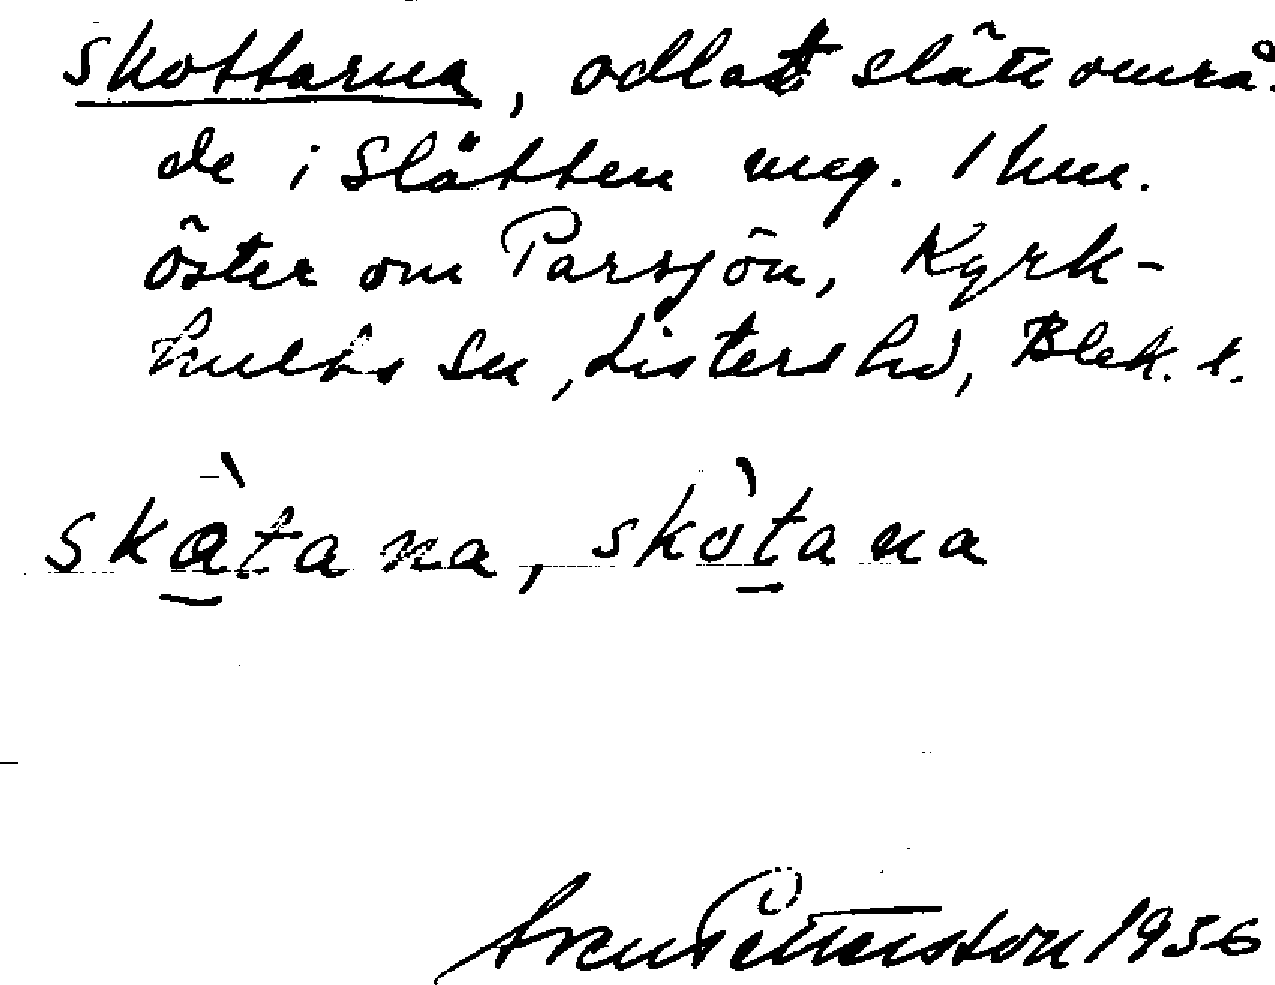 Skottarna, odlat slätt områ-
de i Slätten ung. 1 km.
öster om Parsjön, Kyrk-
hults sn, Listers hd, Blek. l.
skàtana, skòtana
Sven Pettersson 1956